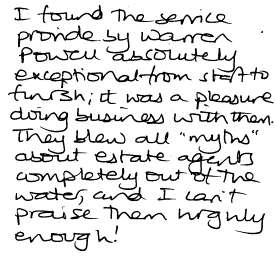 I found the service
provide by Warren
Powell absolutely
exceptional from start to
finish; it was a pleasure
doing business with them.
They blew all "myths"
about estate agents
completely out of the
water, and I can't
praise them highly
enough!